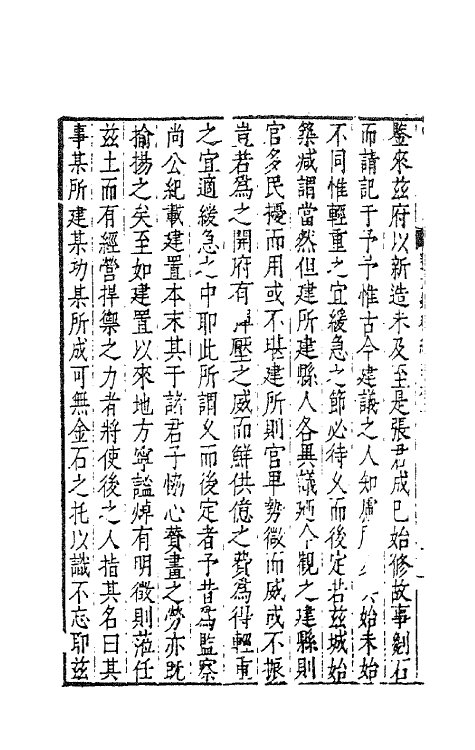 鑒來兹府以新造未及至是張君成已始修故事剜石
而請記于予予惟古今建議之人知慮始未始
不同惟輕重之宜緩急之節必待义而後定若兹城始
築咸謂當然但建所建縣人各異議廼今觀之建縣則
官多民擾而用或不堪建所則官卑勢微而威或不振
豈若爲之開府有壓之威而鮮供億之費爲得輕重
之宜適緩急之中耶此所謂义而後定者予昔爲監察
尚公紀載建置本末其于諸君子恊心賛畫之勞亦既
揄揚之矣至如建置以來地方寧謐焯有明徵則蒞任
兹土而有經營捍禦之力者將使後之人指其名曰某
事某所建某功某所成可無金石之托以識不忘耶兹